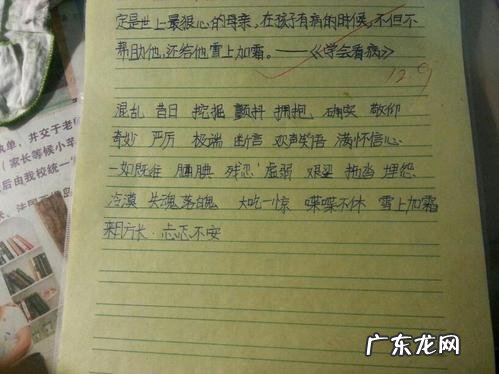 定是世上最狠心的母亲,在孩子有病的时候,不但不
帮助他,还给他雪上加霜。——《学会看病》
12.9
混乱 昔日 挖掘 颤抖 拥抱 确实 敬仰
奇妙 严厉 极端 断言 欢声笑语 满怀信心
一如既往 腼腆 残忍 虚弱 艰难 担当 埋怨
冷漠 失魂落魄 大吃一惊 喋喋不休 雪上加霜
来日方长 忐忑不安
执单,并交于老
(家长等候小苹
后由我校统一
广东龙网